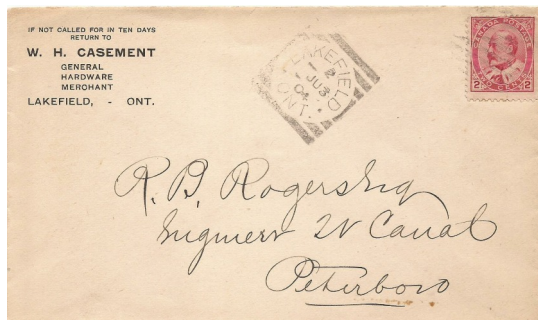 IF NOT CALLED FOR IN TEN DAYS
RETURN TO
W. H. CASEMENT
GENERAL
HARDWARE
MERCHANT
LAKEFIELD, - ONT.
LAKEFIELD
JU 3
04
ONT.
CANADA POSTAGE
2 CENTS 2
R. B. Rogers Esq
Engineer Canal
Peterboro